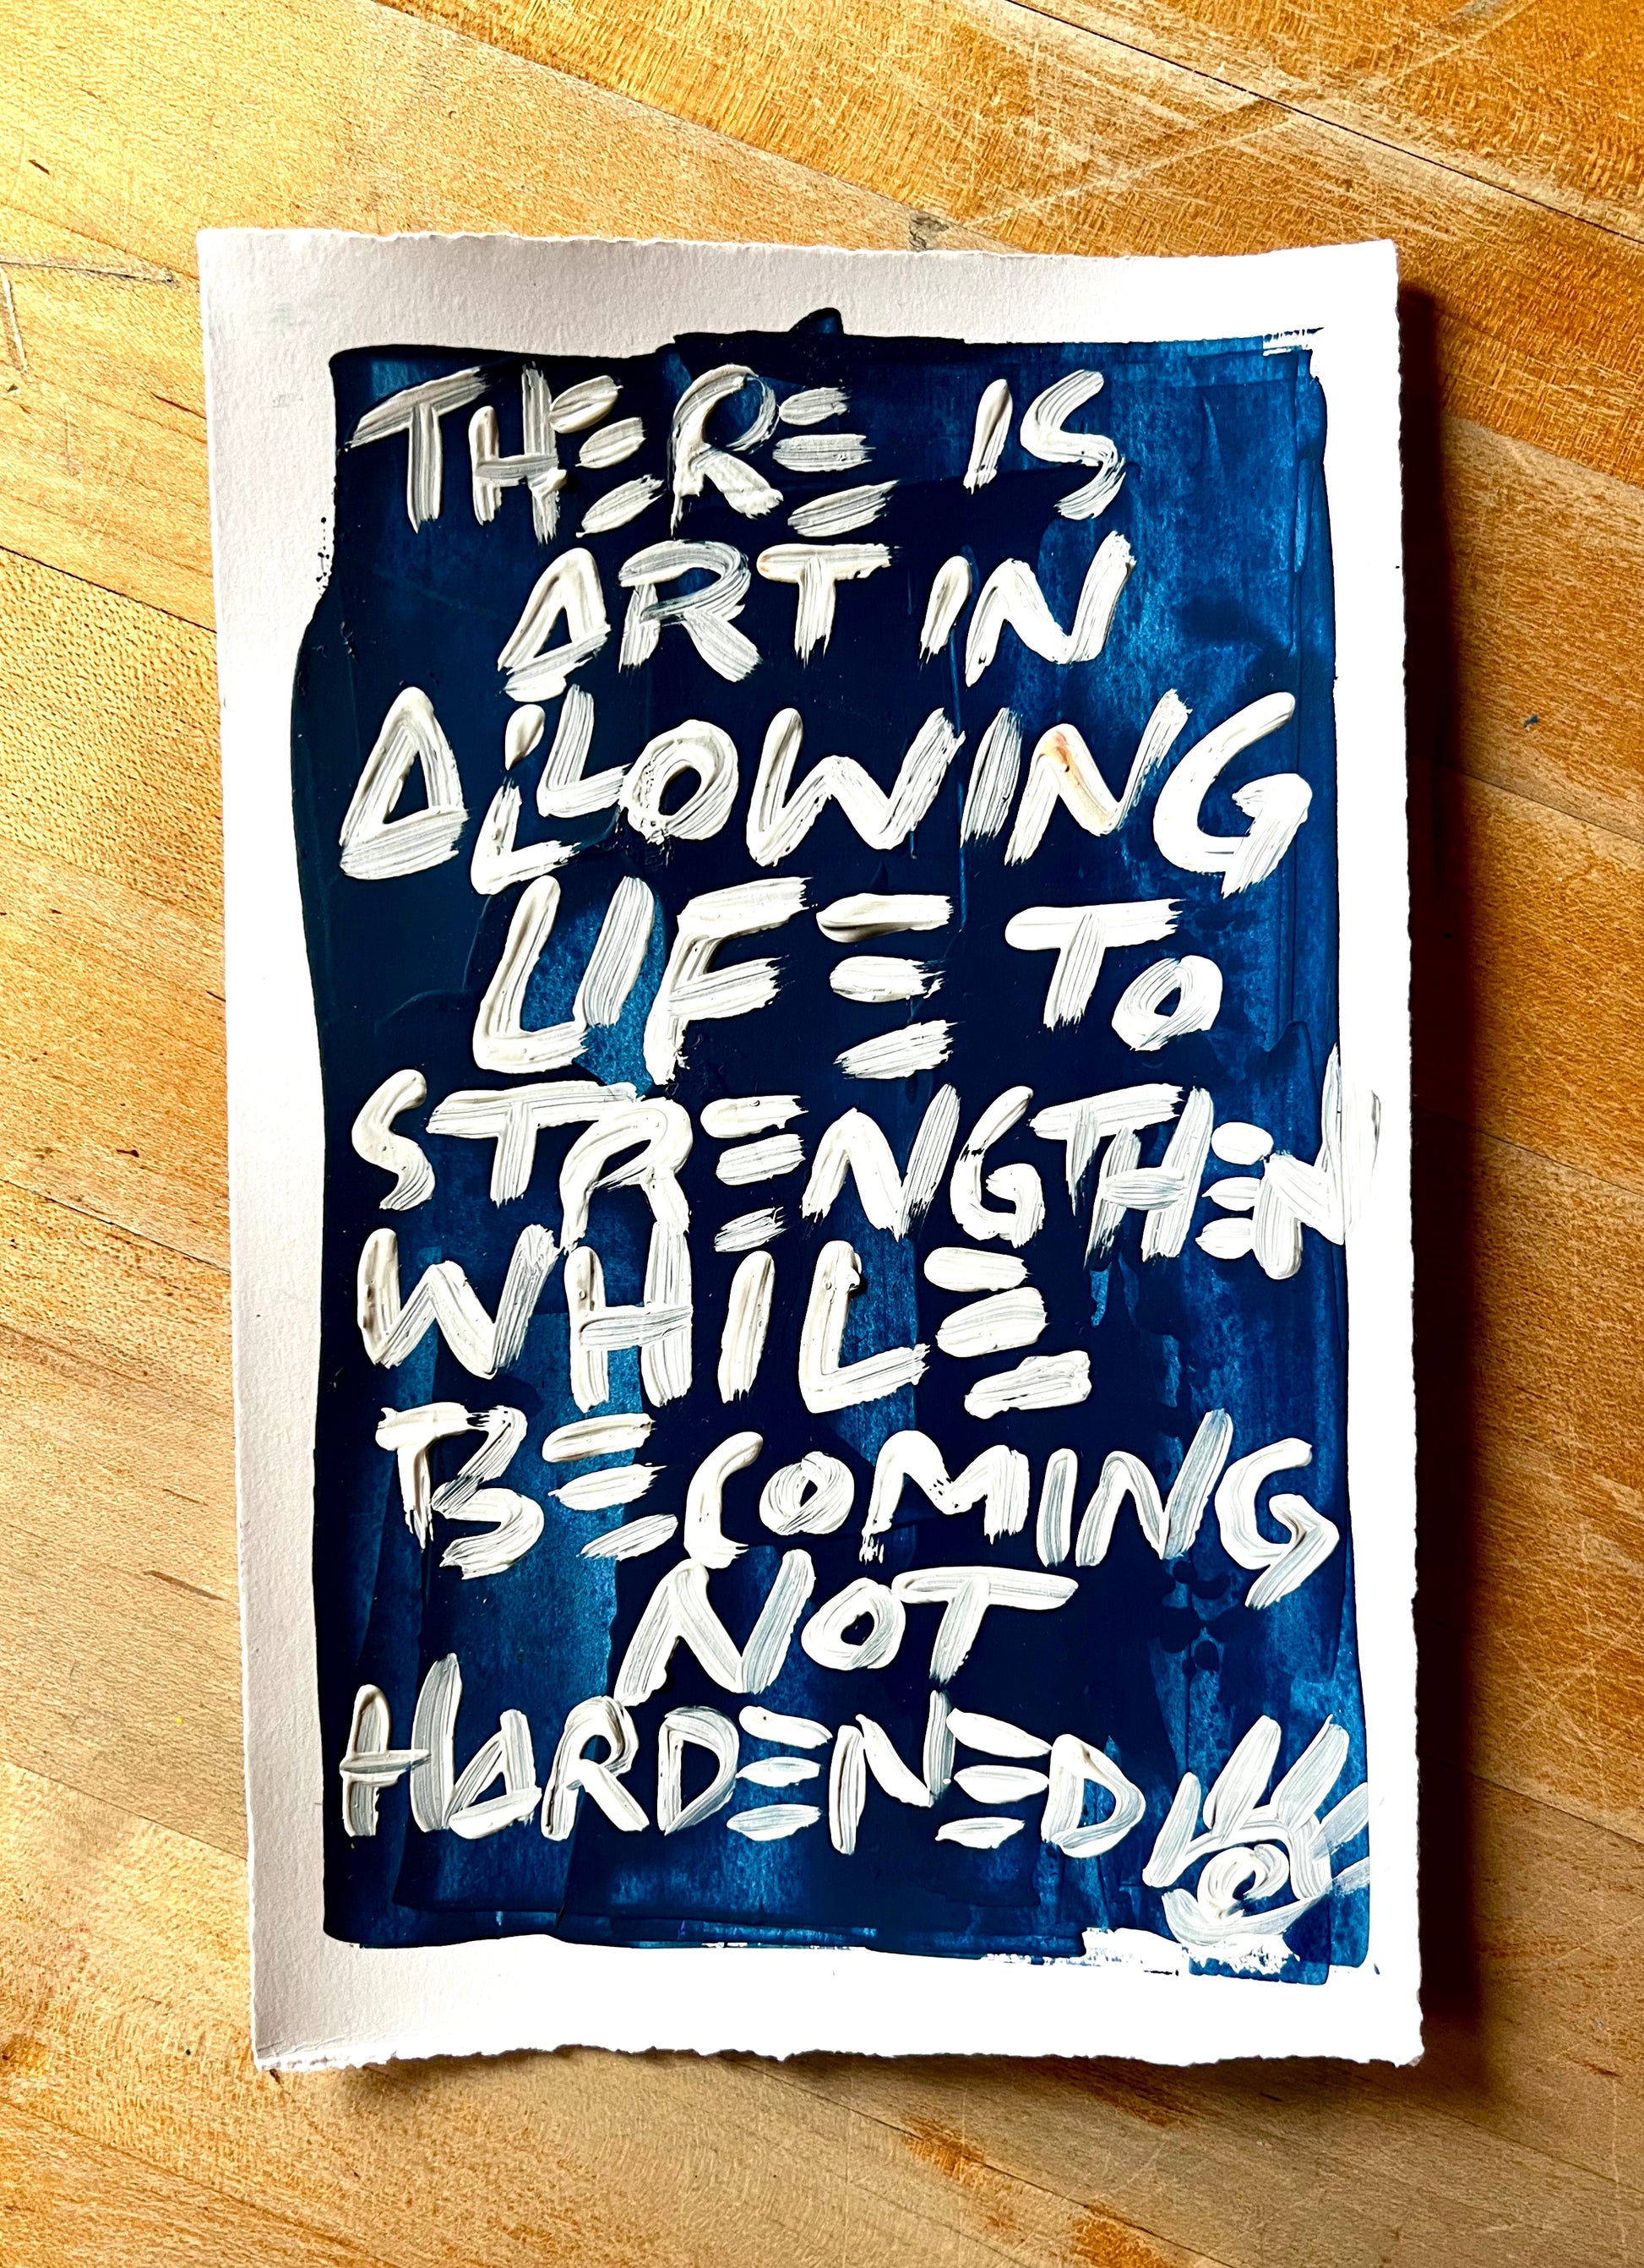 THERE IS
ART IN
ALLOWING
LIFE TO
STRENGTHEN
WHILE
BECOMING
NOT
HARDENED